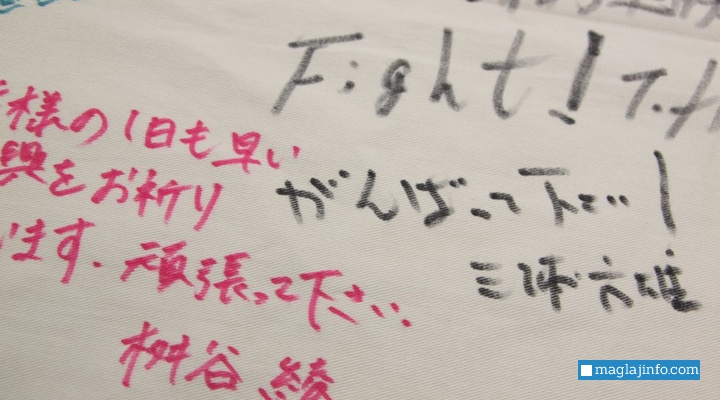 Fight! T.H
様の1日も早い
興をお祈り
います。頑張って下さい。
桝谷 綾
がんばって下さい!
maglajinfo.com